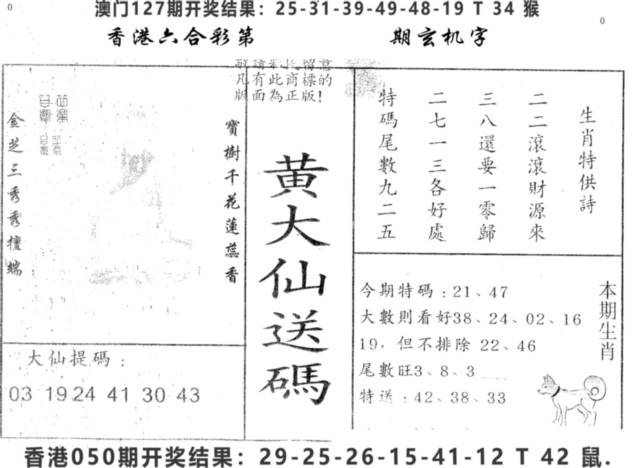 澳门127期开奖结果：25-31-39-49-48-19 T 34 猴
香港六合彩第 期玄机字
敬請彩民留意
凡有此商標的
版面為正版！
生肖特供詩
二二滾滾財源來
三八還要一零歸
二七一三各好處
特碼尾數九二五
寶樹千花蓮蕊香
金芝三秀秀檀端
黄大仙送碼
大仙提碼：
03 19 24 41 30 43
今期特碼：21、47
大數則看好38、24、02、16
19，但不排除 22、46
尾數旺3、8、3
特送：42、38、33
本期生肖
香港050期开奖结果：29-25-26-15-41-12 T 42 鼠.